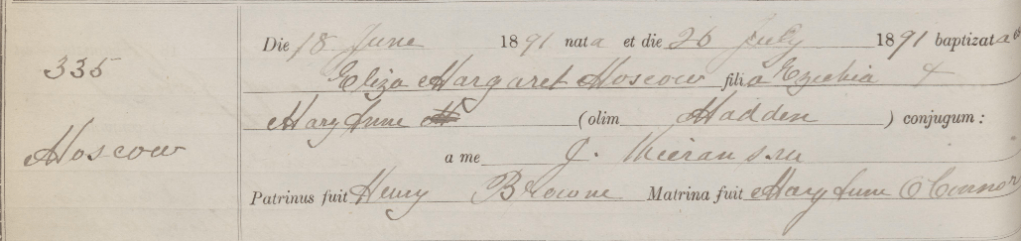 335
Moscow
Die 18 June 1891 nata et die 26 July 1891 baptizata est
Eliza Margaret Moscow filia Ezechia &
Mary Anne (olim Madden) conjugum:
a me J. Kieran
Patrinus fuit Henry Browne Matrina fuit Mary Anne O Connor